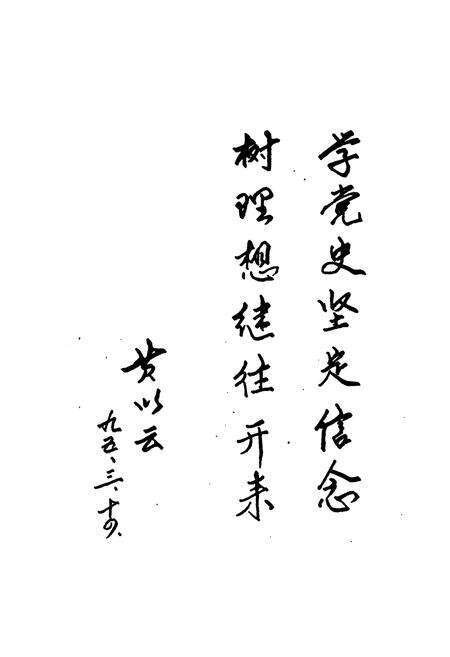 学党史坚定信念
树理想继往开来
黄以云
九五、三、十四、